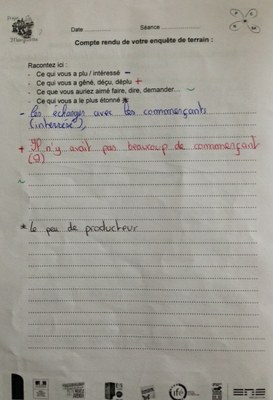 Date Séance
Compte rendu de votre enquête de terrain :
Racontez ici :
- Ce qui vous a plu / intéressé –
- Ce qui vous a gêné, déçu, déplu +
- Ce que vous auriez aimé faire, dire, demander... ~
- Ce qui vous a le plus étonné *
- les échanges avec les commerçants
(interessé),
+ Il n'y avait pas beaucoup de commerçant
(9)
~
* le peu de producteur
ifé
ENS